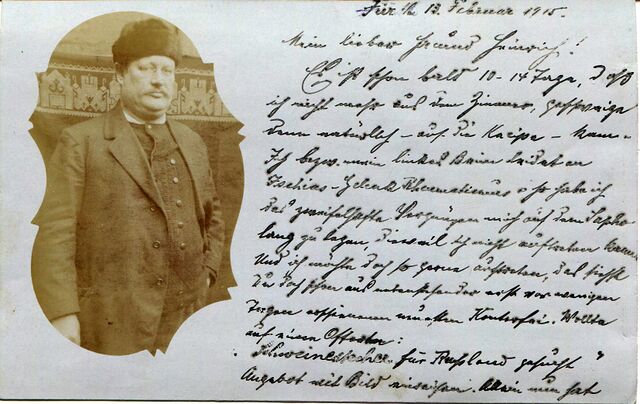 Für th 13. Februar 1915.
Mein lieber Freund Heinrich!
Es ist schon bald 10-14 Tage, daß
ich nicht mehr aus dem Zimmer, geschweige
denn natürlich - auf die Kneipe - kam.
Ich bezw. mein linkes Bein leidet an
Ischias-Gelenk Rheumatismus u so habe ich
das zweifelhafte Vergnügen mich auf dem
lang zu legen, dieweil ich nicht auftreten kann.
Und ich möchte doch so gerne auftreten, das siehst
Du doch schon aus untenstehender erst vor wenigen
Tagen erschienenen Konterfei. Wollte
auf eine Offerte:
für Rußland gesucht "
Angebot mit Bild einreichen. Allein nun hat